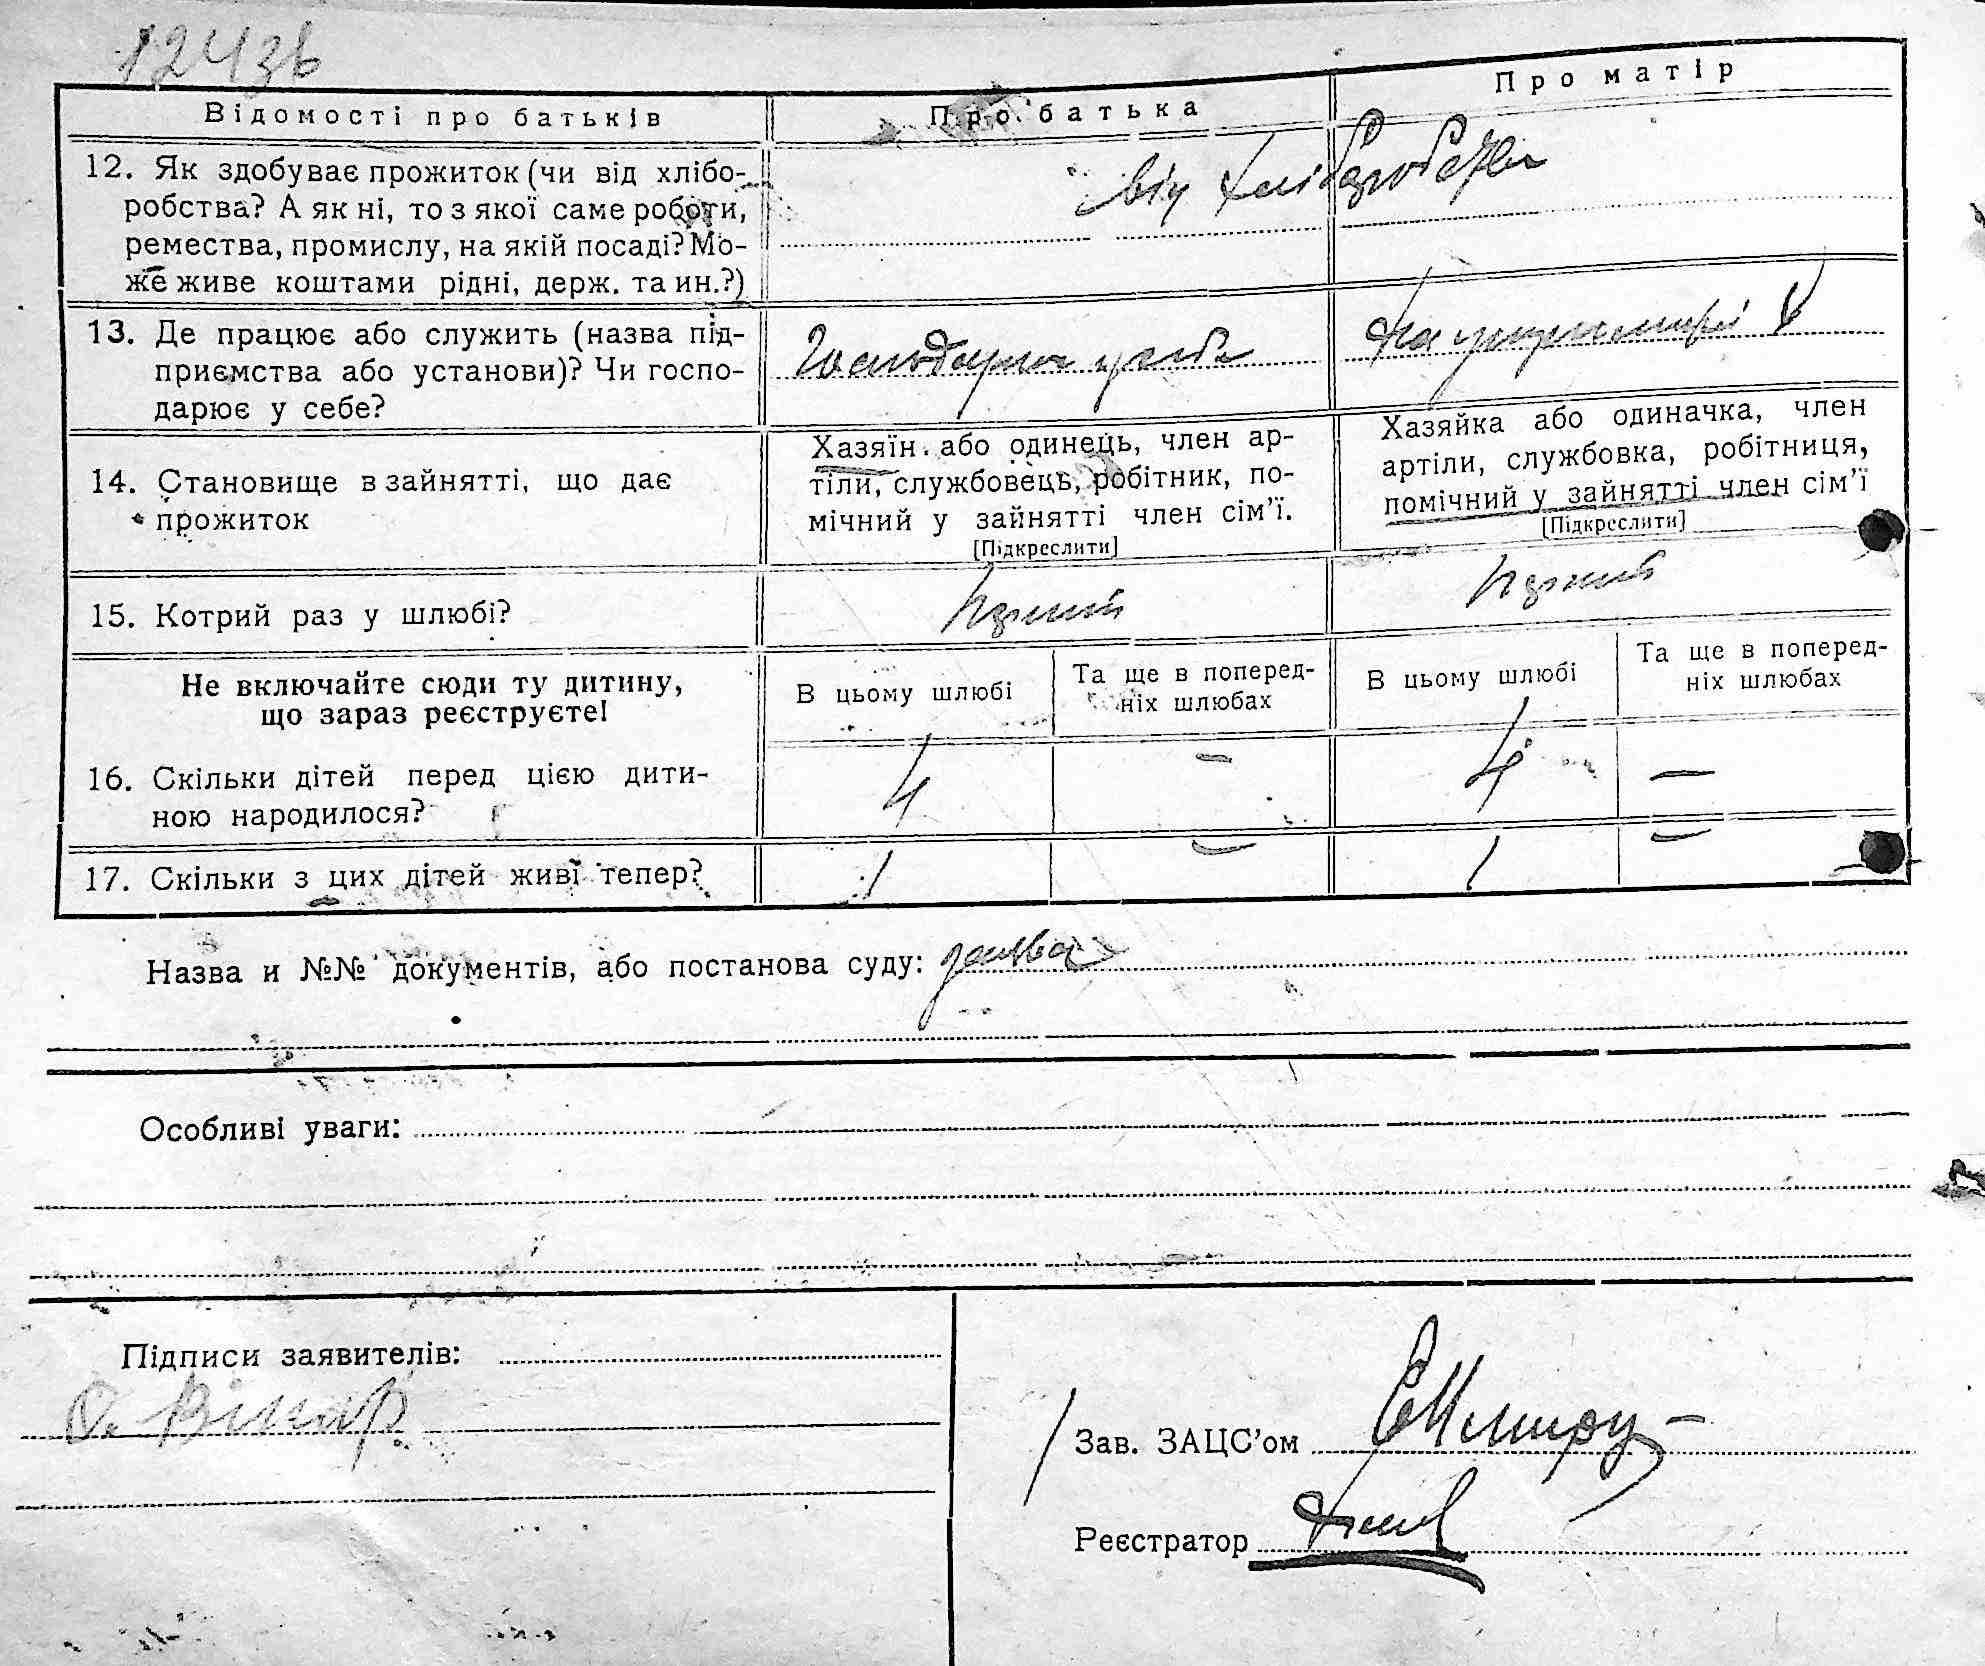 1243б
Відомості про батьків
Про батька
Про матір
12. Як здобуває прожиток (чи від хлібо-
робства? А як ні, то з якої саме роботи,
ремества, промислу, на якій посаді? Мо-
же живе коштами рідні, держ. та ин.?)
від хліборобства
13. Де працює або служить (назва під-
приємства або установи)? Чи госпо-
дарює у себе?
Господарює у себе
На утриманні
14. Становище в зайнятті, що дає
прожиток
Хазяїн або одинець, член ар-
тіли, службовець, робітник, по-
мічний у зайнятті член сім'ї.
[Підкреслити]
Хазяйка або одиначка, член
артіли, службовка, робітниця,
помічний у зайнятті член сім'ї
[Підкреслити]
15. Котрий раз у шлюбі?
Перший
Перший
Не включайте сюди ту дитину,
що зараз реєструєте!
В цьому шлюбі
Та ще в поперед-
ніх шлюбах
В цьому шлюбі
Та ще в поперед-
ніх шлюбах
16. Скільки дітей перед цією дити-
ною народилося?
4
—
4
—
17. Скільки з цих дітей живі тепер?
1
—
1
—
Назва и №№ документів, або постанова суду: заява
Особливі уваги:
Підписи заявителів:
О. Вінар
Зав. ЗАЦС'ом
Реєстратор